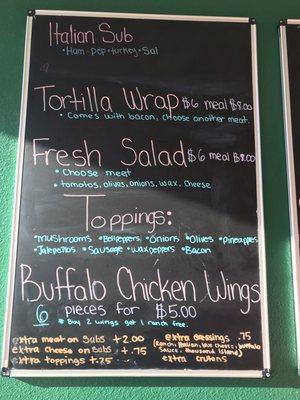 Italian Sub
• Ham • pep • turkey • Sal
Tortilla Wrap $6 meal $9.00
• Comes with bacon, choose another meat.
Fresh Salad $6 meal $9.00
• Choose meet
• tomatos, olives, onions, wax, cheese
Toppings:
• mushrooms • Bellpeppers • Onions • Olives • pineapples
• Jalepeños • Sausage • waxpeppers • Bacon
Buffalo Chicken Wings
6 pieces for $5.00
* Buy 2 wings get 1 ranch free.
extra meat on subs + 2.00
extra cheese on subs + .75
extra toppings + .25
extra dressings .75
(Ranch, Italian, blue cheese, buffalo
sauce, thousand island)
extra crutons